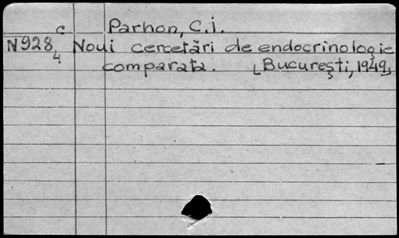 c Parhon, C.I.
N928 Noui cercetări de endocrinologie
4 comparata. [București, 1949]